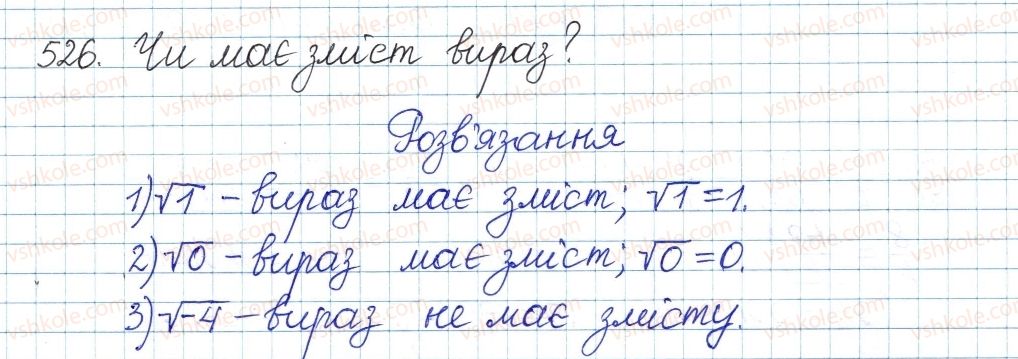 526. Чи має зміст вираз?
Розв'язання
1) √1 – вираз має зміст; √1 = 1.
2) √0 – вираз має зміст; √0 = 0.
3) √-4 – вираз не має змісту.